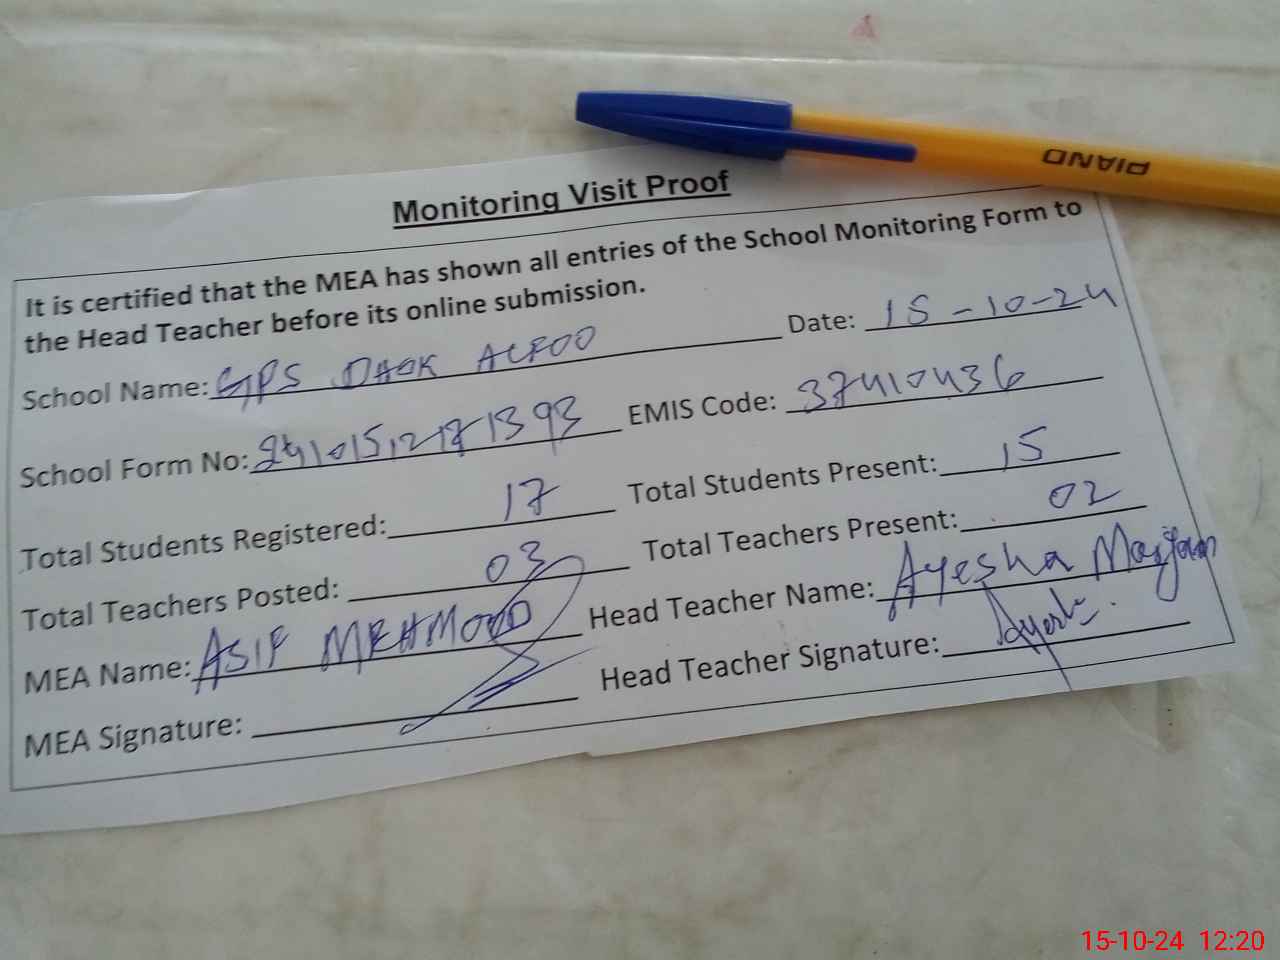 PIANO
Monitoring Visit Proof
It is certified that the MEA has shown all entries of the School Monitoring Form to
the Head Teacher before its online submission.
School Name: GPS DHOK ACFOO Date: 15-10-24
School Form No: 24101512171393 EMIS Code: 37410436
Total Students Registered: 17 Total Students Present: 15
Total Teachers Posted: 03 Total Teachers Present: 02
MEA Name: ASIF MEHMOOD Head Teacher Name: Ayesha Marjan
MEA Signature: Head Teacher Signature: Ayesha
15-10-24 12:20